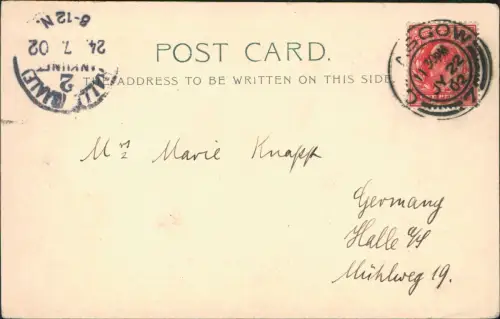 POST CARD.
THE ADDRESS TO BE WRITTEN ON THIS SIDE
GLASGOW
JY 22
02
HALLE (SAALE)
2
24. 7. 02
8-12 N
Mrs Marie Knapp
Germany
Halle a/S
Mühlweg 19.